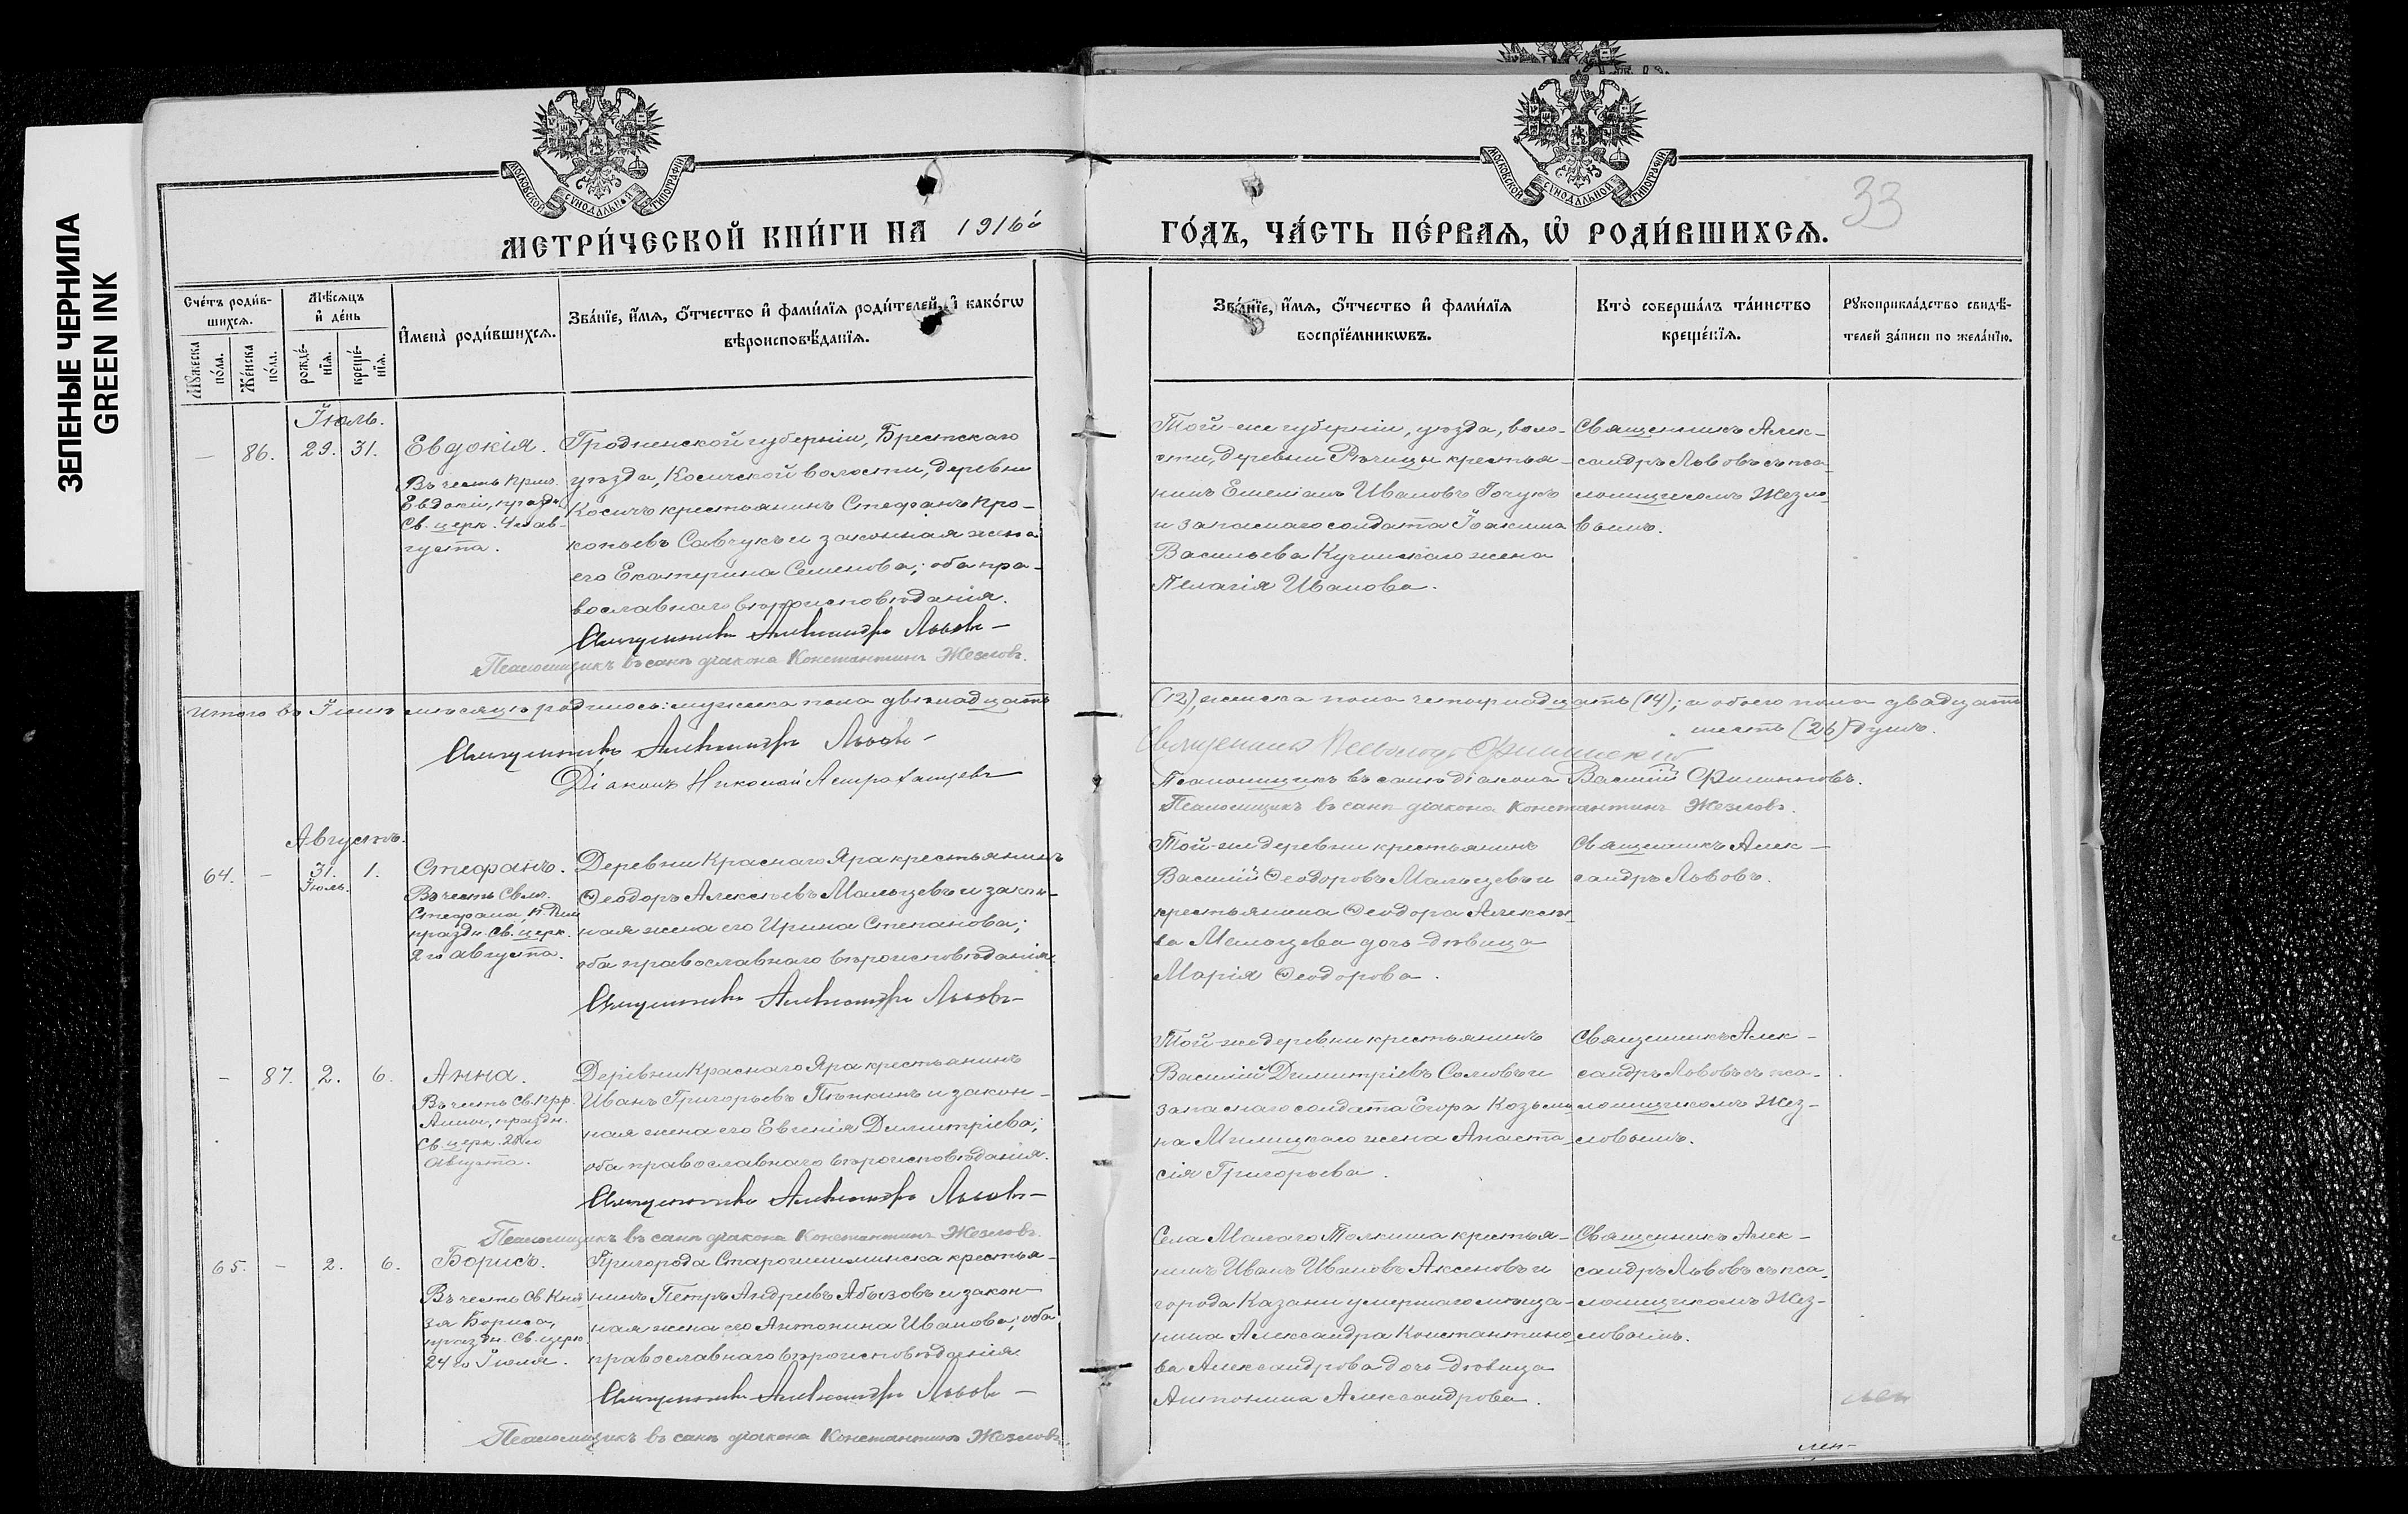 ЗЕЛЕНЫЕ ЧЕРНИЛА
GREEN INK
МОСКОВСКОЙ СУНОДАЛЬНОЙ ТИПОГРАФИИ
МОСКОВСКОЙ СУНОДАЛЬНОЙ ТИПОГРАФИИ
33
МЕТРИ́ЧЕСКОЙ КНИ́ГИ НА 1916й
ГО́ДЪ, ЧА́СТЬ ПЕ́РВАѦ, Ѡ РОДИ́ВШИХСѦ.
Сче́тъ роди́в-
шихсѧ.
Мѣ́сѧцъ
и де́нь
Мꙋ́жеска
по́ла.
Же́нска
по́ла.
рожде́-
нїѧ.
креще́-
нїѧ.
Имена̀ роди́вшихсѧ.
Зва́нїе, и́мѧ, ѻ́тчество и фами́лїѧ роди́телей, и како́гѡ
вѣроисповѣ́данїѧ.
Зва́нїе, и́мѧ, ѻ́тчество и фами́лїѧ
воспрїе́мникѡвъ.
Кто̀ соверша́лъ та́инство
креще́нїѧ.
Рꙋкоприкла́дство свидѣ́-
телей за́писи по жела́нїю.
Іюль.
— 86. 29. 31. Евдокія.
Въ честь прмч.
Евдокіи, праздн.
Св. церк. 4го ав-
густа.
Гродненской губерніи, Брестскаго
уѣзда, Косичской волости, деревни
Косичъ крестьянинъ Стефанъ Про-
копьевъ Савчукъ и законная жена
его Екатерина Семенова; оба пра-
вославнаго вѣроисповѣданія.
Священникъ Александръ Львовъ
Псаломщикъ въ санѣ діакона Константинъ Жезловъ.
Той-же губерніи, уѣзда, воло-
сти, деревни Рѣчицы крестья-
нинъ Емеліанъ Ивановъ Гочукъ
и запаснаго солдата Іоакима
Васильева Кучинскаго жена
Пелагія Иванова.
Священникъ Алек-
сандръ Львовъ съ пса-
ломщикомъ Жезло-
вымъ.
Итого въ Іюлѣ мѣсяцѣ родилось: мужеска пола двѣнадцать
(12), женска пола четырнадцать (14); а обоего пола двадцать
шесть (26) душъ.
Священникъ Александръ Львовъ
Діаконъ Николай Астраханцевъ
Священникъ
Псаломщикъ въ санѣ діакона Василій Филипповъ.
Псаломщикъ въ санѣ діакона Константинъ Жезловъ.
Августъ.
64. — 31. 1. Стефанъ.
Іюль.
Въ честь Свмч.
Стефана, п. Рим
праздн. Св. церк.
2го августа.
Деревни Краснаго Яра крестьянинъ
Ѳеодоръ Алексѣевъ Мальцевъ и закон-
ная жена его Ирина Степанова;
оба православнаго вѣроисповѣданія.
Священникъ Александръ Львовъ
Той-же деревни крестьянинъ
Василій Ѳеодоровъ Мальцевъ и
крестьянина Ѳеодора Алексѣе
ва Мальцева дочь-дѣвица
Марія Ѳеодорова.
Священникъ Алек-
сандръ Львовъ.
— 87. 2. 6. Анна.
Въ честь св. прр.
Анны, праздн.
Св. церк. 28го
августа.
Деревни Краснаго Яра крестьянинъ
Иванъ Григорьевъ Пѣнкинъ и закон-
ная жена его Евгенія Димитріева;
оба православнаго вѣроисповѣданія.
Священникъ Александръ Львовъ
Псаломщикъ въ санѣ діакона Константинъ Жезловъ.
Той-же деревни крестьянинъ
Василій Димитріевъ Сомовъ и
запаснаго солдата Егора Козьми-
на жена Анаста-
сія Григорьева.
Священникъ Алек-
сандръ Львовъ съ пса-
ломщикомъ Жез-
ловымъ.
65. — 2. 6. Борисъ.
Въ честь Св. Кня
зя Бориса,
праздн. Св. церк.
24го Іюля.
Пригорода Старошешминска крестья-
нинъ Петръ Андреевъ Абызовъ и закон-
ная жена его Антонина Иванова; оба
православнаго вѣроисповѣданія.
Священникъ Александръ Львовъ
Псаломщикъ въ санѣ діакона Константинъ Жезловъ.
Села Малаго Толкиша крестья-
нинъ Иванъ Ивановъ Аксеновъ и
города Казани умершаго мѣща-
нина Александра Константино-
ва Александрова дочь-дѣвица
Антонина Александрова.
Священникъ Алек-
сандръ Львовъ съ пса-
ломщикомъ Жез-
ловымъ.